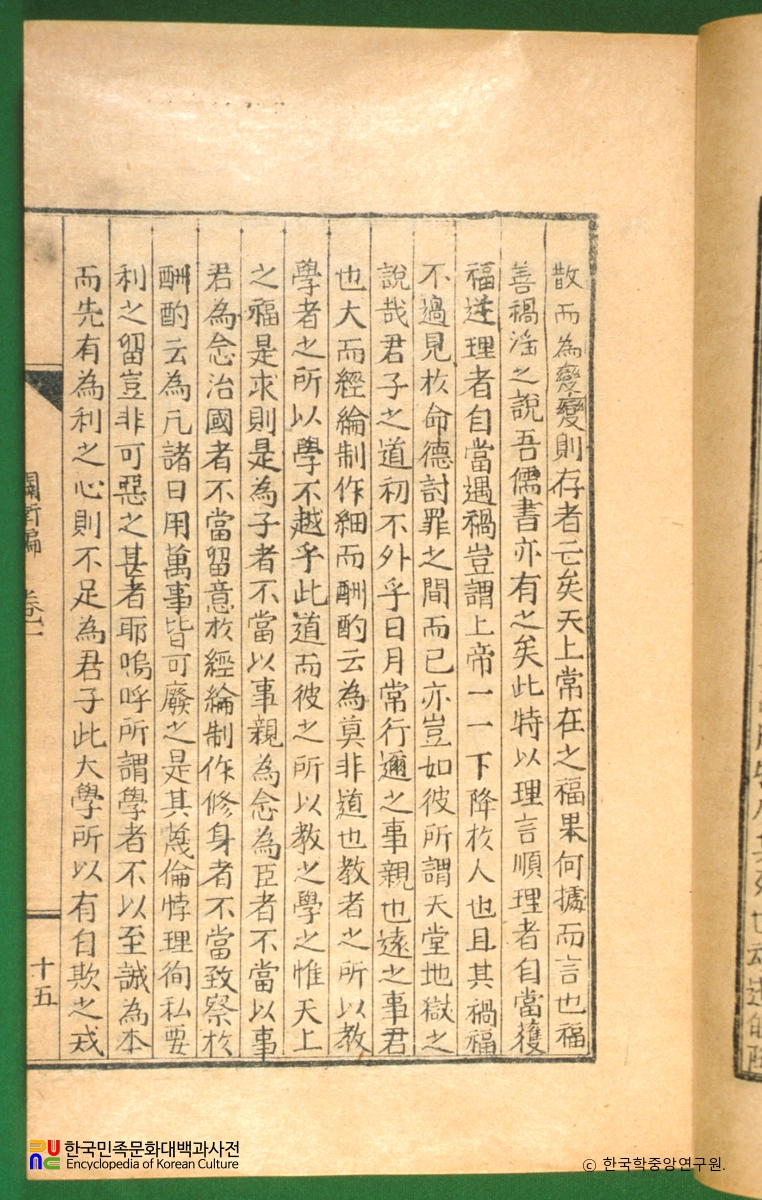 散而為變變則存者亡矣天上常在之福果何據而言也福
善禍淫之說吾儒書亦有之矣此特以理言順理者自當獲
福逆理者自當遇禍豈謂上帝一一下降於人也且其禍福
不過見於命德討罪之間而已亦豈如彼所謂天堂地獄之
說哉君子之道初不外乎日月常行邇之事親也遠之事君
也大而經綸制作細而酬酌云為莫非道也教者之所以教
學者之所以學不越乎此道而彼之所以教之學之惟天上
之福是求則是為子者不當以事親為念為臣者不當以事
君為念治國者不當留意於經綸制作修身者不當致察於
酬酌云為凡諸日用萬事皆可廢之是其蔑倫悖理徇私要
利之習豈非可惡之甚者耶嗚呼所謂學者不以至誠為本
而先有為利之心則不足為君子此大學所以有自欺之戒
闢衛編 卷一
十五
한국민족문화대백과사전
Encyclopedia of Korean Culture
© 한국학중앙연구원.